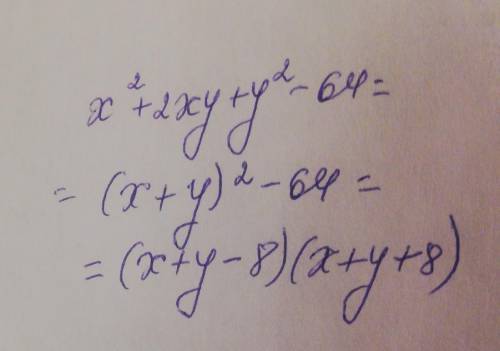 x²+2xy+y²-64=
= (x+y)²-64=
= (x+y-8)(x+y+8)